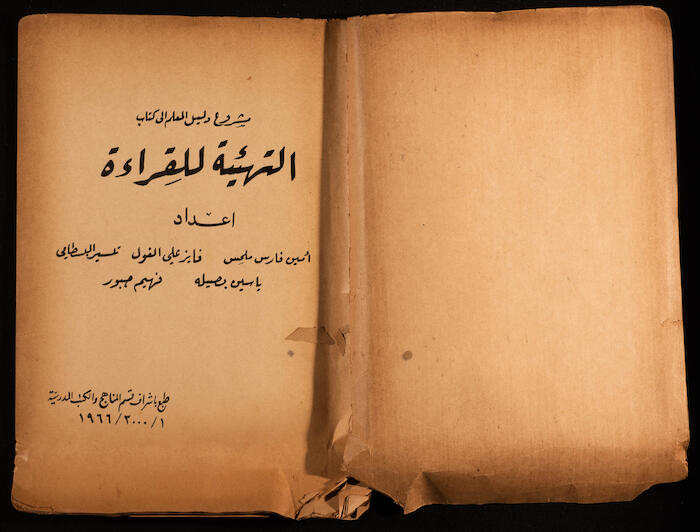 مشروع دليل المعلم الى كتاب
التهيئة للقراءة
اعداد
امين فارس ملحس فايز علي الغول تيسير البسطامي
ياسين بصيله فهيم جبور
طبع باشراف قسم المناهج والكتب المدرسية
١٩٦٦/٣٠٠٠/١